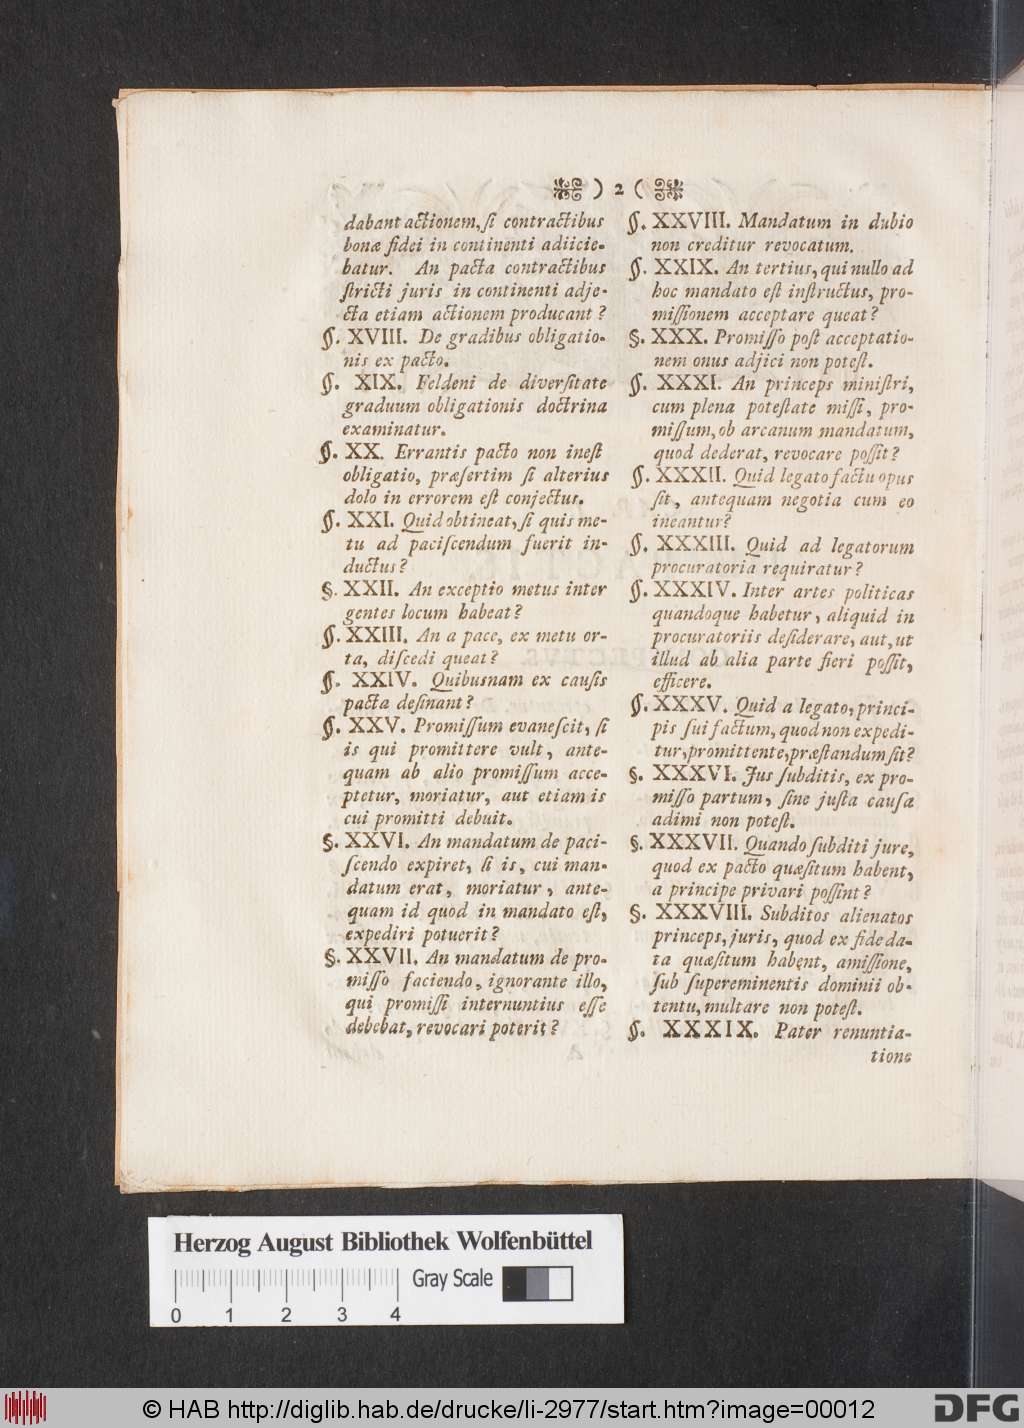 ) 2 (
dabant actionem, ſi contractibus
bonæ fidei in continenti adiicie-
batur. An pacta contractibus
ſtricti juris in continenti adje-
cta etiam actionem producant?
§. XVIII. De gradibus obligatio-
nis ex pacto.
§. XIX. Feldeni de diverſitate
graduum obligationis doctrina
examinatur.
§. XX. Errantis pacto non ineſt
obligatio, præſertim ſi alterius
dolo in errorem eſt conjectus.
§. XXI. Quid obtineat, ſi quis me-
tu ad paciſcendum fuerit in-
ductus?
§. XXII. An exceptio metus inter
gentes locum habeat?
§. XXIII. An a pace, ex metu or-
ta, diſcedi queat?
§. XXIV. Quibusnam ex cauſis
pacta deſinant?
§. XXV. Promiſſum evaneſcit, ſi
is qui promittere vult, ante-
quam ab alio promiſſum acce-
ptetur, moriatur, aut etiam is
cui promitti debuit.
§. XXVI. An mandatum de paci-
ſcendo expiret, ſi is, cui man-
datum erat, moriatur, ante-
quam id quod in mandato eſt,
expediri potuerit?
§. XXVII. An mandatum de pro-
miſſo faciendo, ignorante illo,
qui promiſſi internuntius eſſe
debebat, revocari poterit?
§. XXVIII. Mandatum in dubio
non creditur revocatum.
§. XXIX. An tertius, qui nullo ad
hoc mandato eſt inſtructus, pro-
miſſionem acceptare queat?
§. XXX. Promiſſo poſt acceptatio-
nem onus adjici non poteſt.
§. XXXI. An princeps miniſtri,
cum plena poteſtate miſſi, pro-
miſſum, ob arcanum mandatum,
quod dederat, revocare poſſit?
§. XXXII. Quid legato factu opus
ſit, antequam negotia cum eo
ineantur?
§. XXXIII. Quid ad legatorum
procuratoria requiratur?
§. XXXIV. Inter artes politicas
quandoque habetur, aliquid in
procuratoriis deſiderare, aut, ut
illud ab alia parte fieri poſſit,
efficere.
§. XXXV. Quid a legato, princi-
pis ſui factum, quod non expedi-
tur, promittente, præſtandum ſit?
§. XXXVI. Jus ſubditis, ex pro-
miſſo partum, ſine juſta cauſa
adimi non poteſt.
§. XXXVII. Quando ſubditi jure,
quod ex pacto quæſitum habent,
a principe privari poſſint?
§. XXXVIII. Subditos alienatos
princeps, juris, quod ex fide da-
ta quæſitum habent, amiſſione,
ſub ſupereminentis dominii ob-
tentu, multare non poteſt.
§. XXXIX. Pater renuntia-
tione
Herzog August Bibliothek Wolfenbüttel
Gray Scale
0 1 2 3 4
© HAB http://diglib.hab.de/drucke/li-2977/start.htm?image=00012
DFG